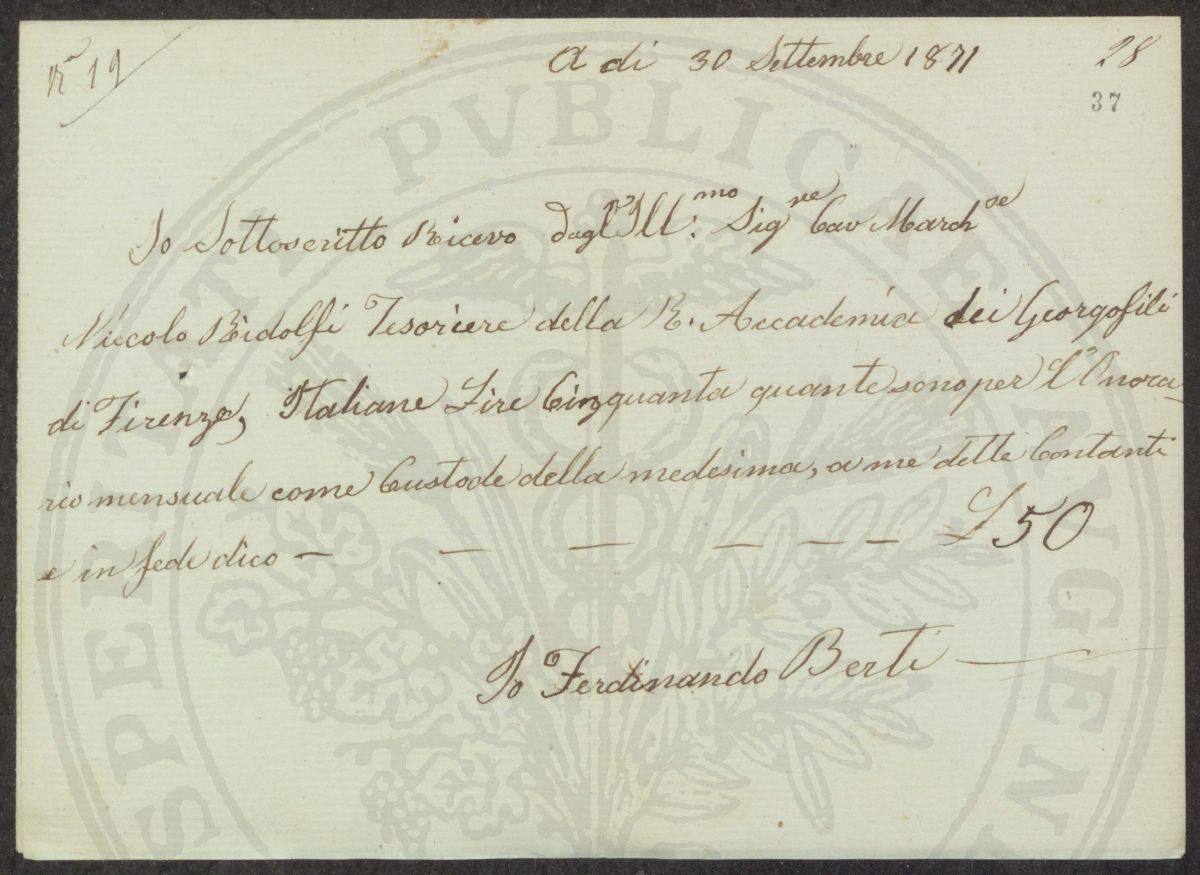 N.º 19
A di 30 Settembre 1871
28
37
Io Sottoscritto Ricevo dagl'Ill:mo Sigre Cav Marchse
Niccolo Ridolfi Tesoriere della R. Accademia dei Georgofili
di Firenze, Italiane Lire Cinquanta quante sono per l'Onora-
rio mensuale come Custode della medesima, a me dette Contanti
e in fede dico — — — — — — £ 50
Io Ferdinando Berti
PROSPERITATI PVBLICAE AVGENDAE